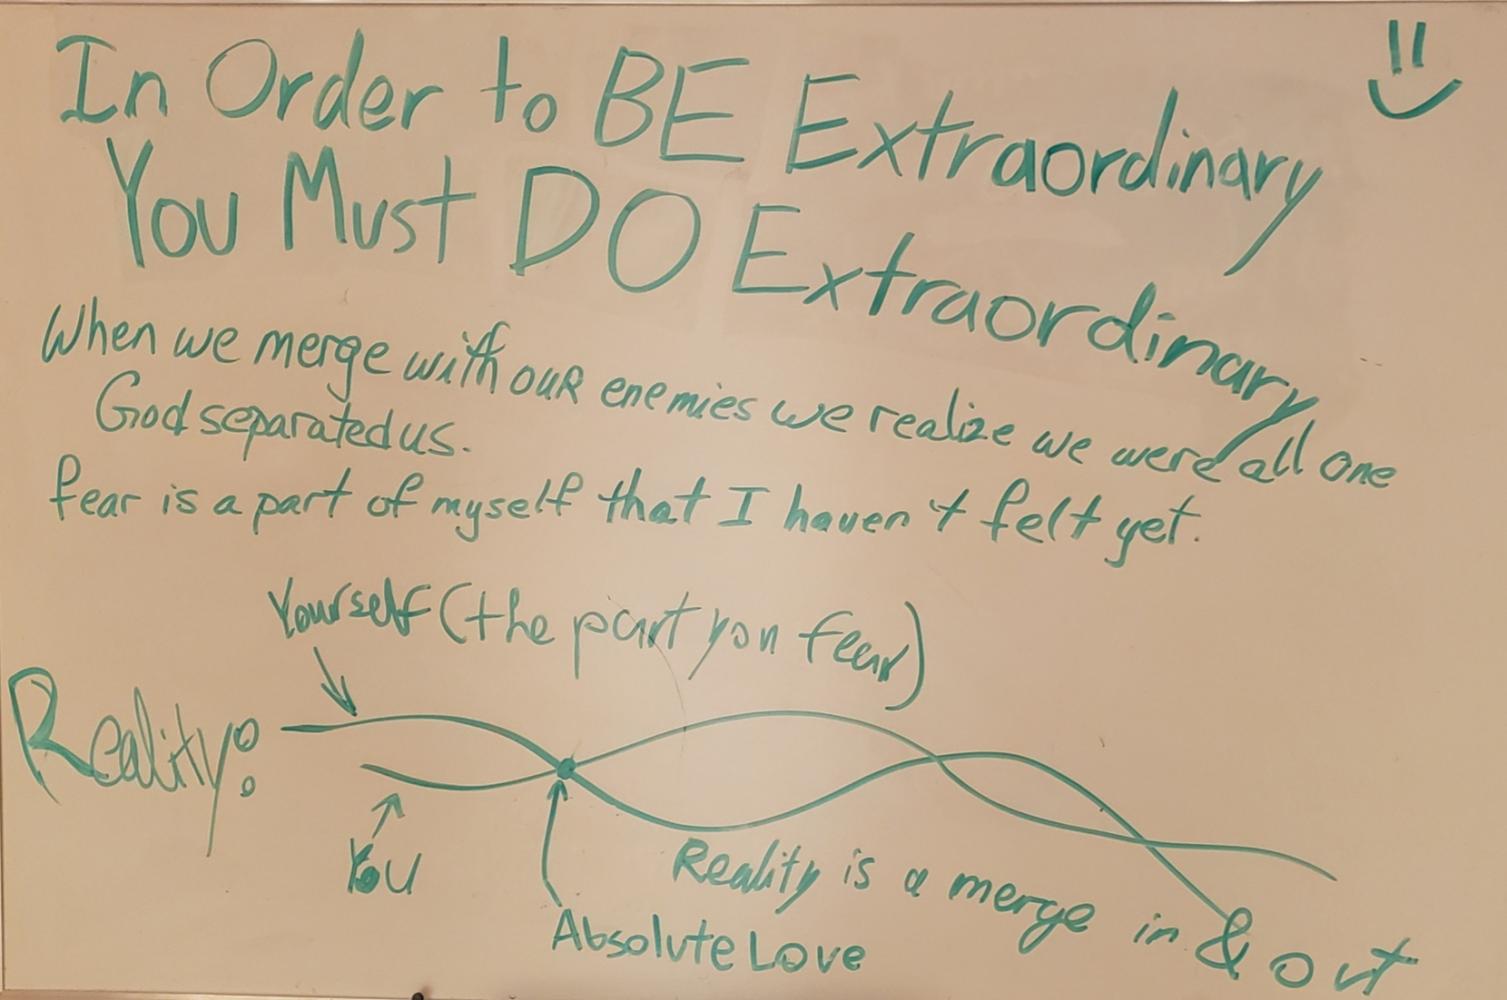 In Order to BE Extraordinary
You Must DO Extraordinary
When we merge with our enemies we realize we were all one
God separated us.
fear is a part of myself that I haven't felt yet.
Yourself (the part you fear)
Reality:
You
Absolute Love
Reality is a merge in & out